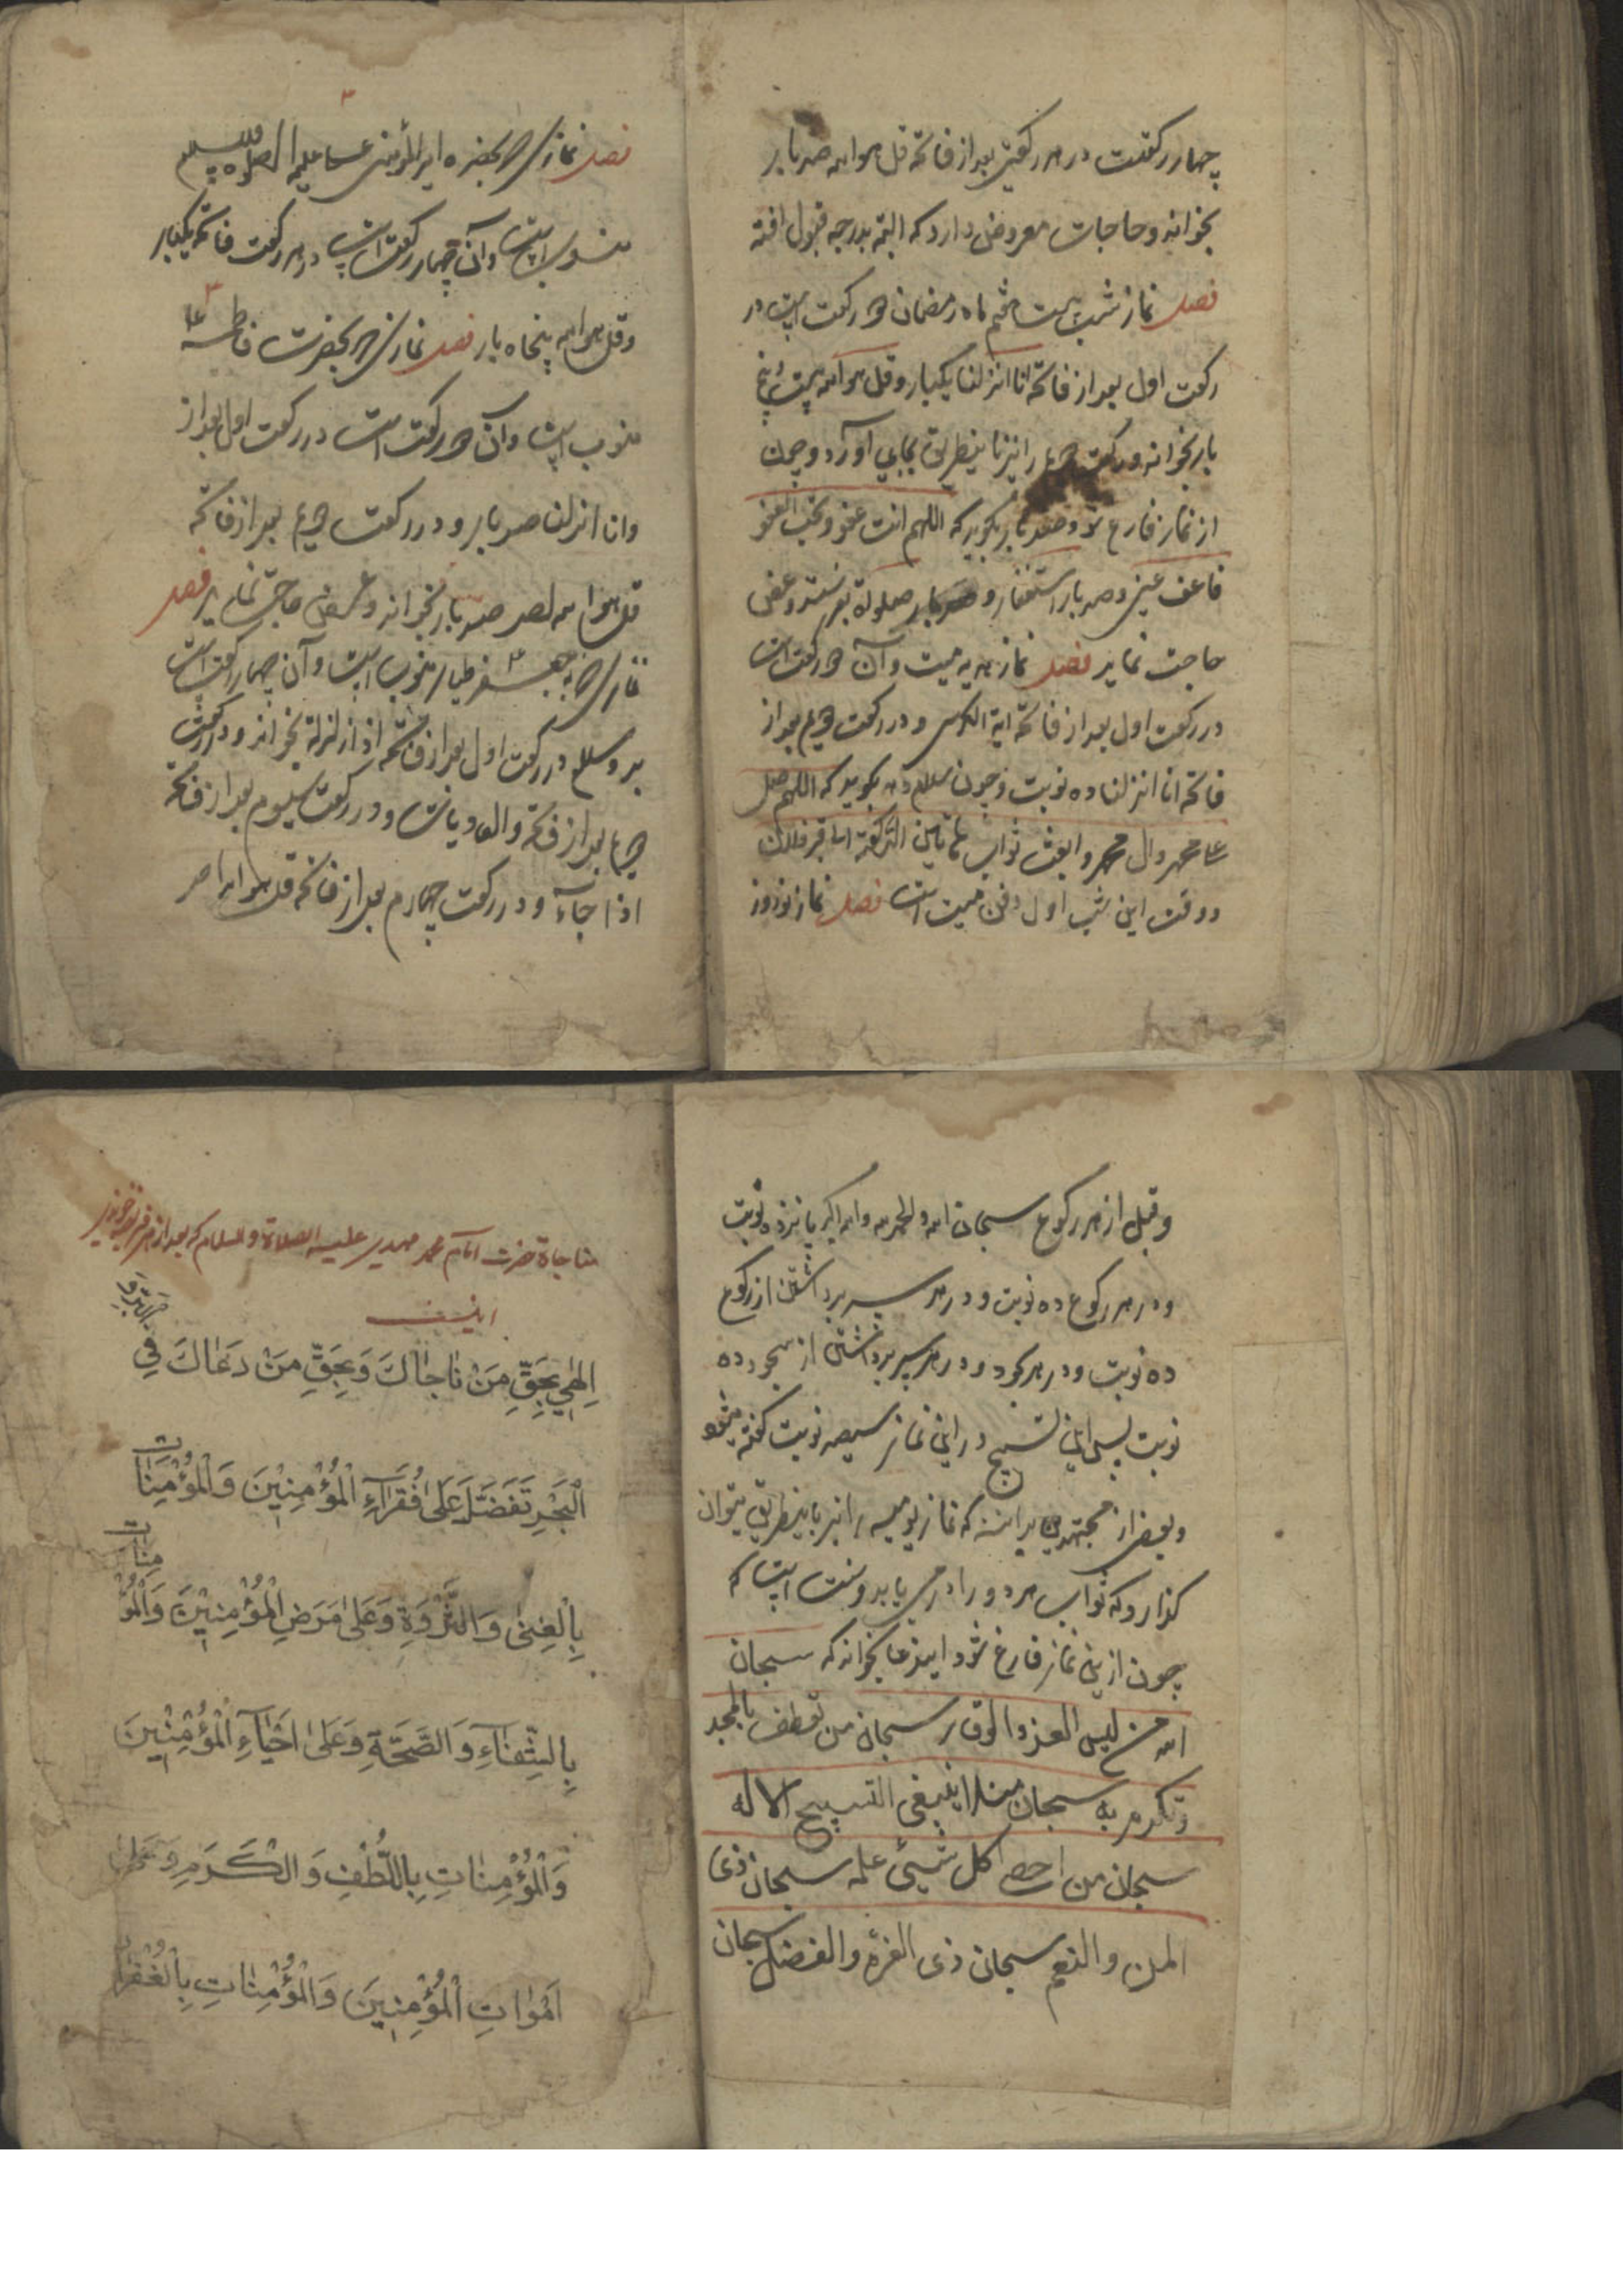 چهار رکعتست در هر رکعتی بعد از فاتحه قل هو الله صد بار
بخواند و حاجات معروض دارد که البته بدرجه قبول افتد
فصل نماز شب بیست هشتم ماه رمضان دو رکعت است در
رکعت اول بعد از فاتحه انا انزلنا یکبار و قل هو الله بیست پنج
بار بخواند و رکعت دوم را نیز باینطریق بجای آورد و چون
از نماز فارغ شود صد بار بگوید که اللهم انت عفو تحب العفو
فاعف عنی و صد بار استغفار و صد بار صلوة بفرستد و عرض
حاجت نماید فصل نماز هدیه میت و آن دو رکعت است
در رکعت اول بعد از فاتحه ایة الکرسی و در رکعت دوم بعد از
فاتحه انا انزلنا ده نوبت و چون سلام دهد بگوید که اللهم صل
علی محمد وال محمد وابعث ثواب هاتین الرکعة الی قبر فلان
و وقت این شب اول دفن میت است فصل نماز نوروز
فصل نماز که بحضرت امیر المؤمنین علی علیه الصلوة والسلم
منسوبست وآن چهار رکعت است در هر رکعت فاتحه یکبار
وقل هو الله پنجاه بار فصل نماز که بحضرت فاطمه ع
منسوب است وآن دو رکعت است در رکعت اول بعد از
وانا انزلنا صد بار و در رکعت دوم بعد از فاتحه
قل هو الله احد صد بار بخواند و عرض حاجت نماید فصل
نماز که به جعفر طیار منسوب است وآن چهار رکعت است
بدو سلم در رکعت اول بعد از فاتحه اذا زلزلة بخواند و در رکعت
دوم بعد از فاتحه والعادیات و در رکعت سیوم بعد از فاتحه
اذا جآء و در رکعت چهارم بعد از فاتحه قل هو الله احد
و قبل از هر رکوع سبحان الله والحمد لله والله اکبر پانزده نوبت
و در هر رکوع ده نوبت و در هر سر برداشتن از رکوع
ده نوبت و در هر سجود و در هر سر برداشتن از سجود ده
نوبت پس این تسبیح در این نماز سیصد نوبت گفته میشود
و بعضی از مجتهدین برانند که نماز یومیه را نیز باینطریق میتوان
گذارد که ثواب هر دو را در می یابد و سنت است که
چون ازین نماز فارغ شود ایندعا بخواند که سبحان
الله من لبس العز والوقار سبحان من تعطف بالمجد
وتکرم به سبحان من لا ینبغی التسبیح الا له
سبحان من احصی کل شیئ علمه سبحان ذی
المن والنعم سبحان ذی القدرة والفضل سبحان
مناجاة حضرت امام محمد مهدی علیه الصلاة والسلام که بعد از هر فریضه بخوانند
اینست
اِلهی بِحَقِّ مَنْ نٰاجٰاكَ وَبِحَقِّ مَنْ دَعٰاكَ فِی البَرِّ وَ
الْبَحْرِ تَفَضَّلْ عَلیٰ فُقَرَآءِ الْمُؤْمِنِیْنَ وَالْمُؤْمِنَاتِ
بِالْغِنیٰ وَالثَّرْوَةِ وَعَلیٰ مَرَضِ الْمُؤْمِنِیْنَ وَالْمُؤْمِنٰاتِ
بِالشِّفٰآءِ وَالصَّحَّةِ وَعَلیٰ اَحْیٰآءِ الْمُؤْمِنِیْنَ
وَالْمُؤْمِنٰاتِ بِاللُّطْفِ وَالْکَرَمِ وَعَلیٰ
اَمْوٰاتِ الْمُؤْمِنِیْنَ وَالْمُؤْمِنٰاتِ بِالْغُفْرٰانِ